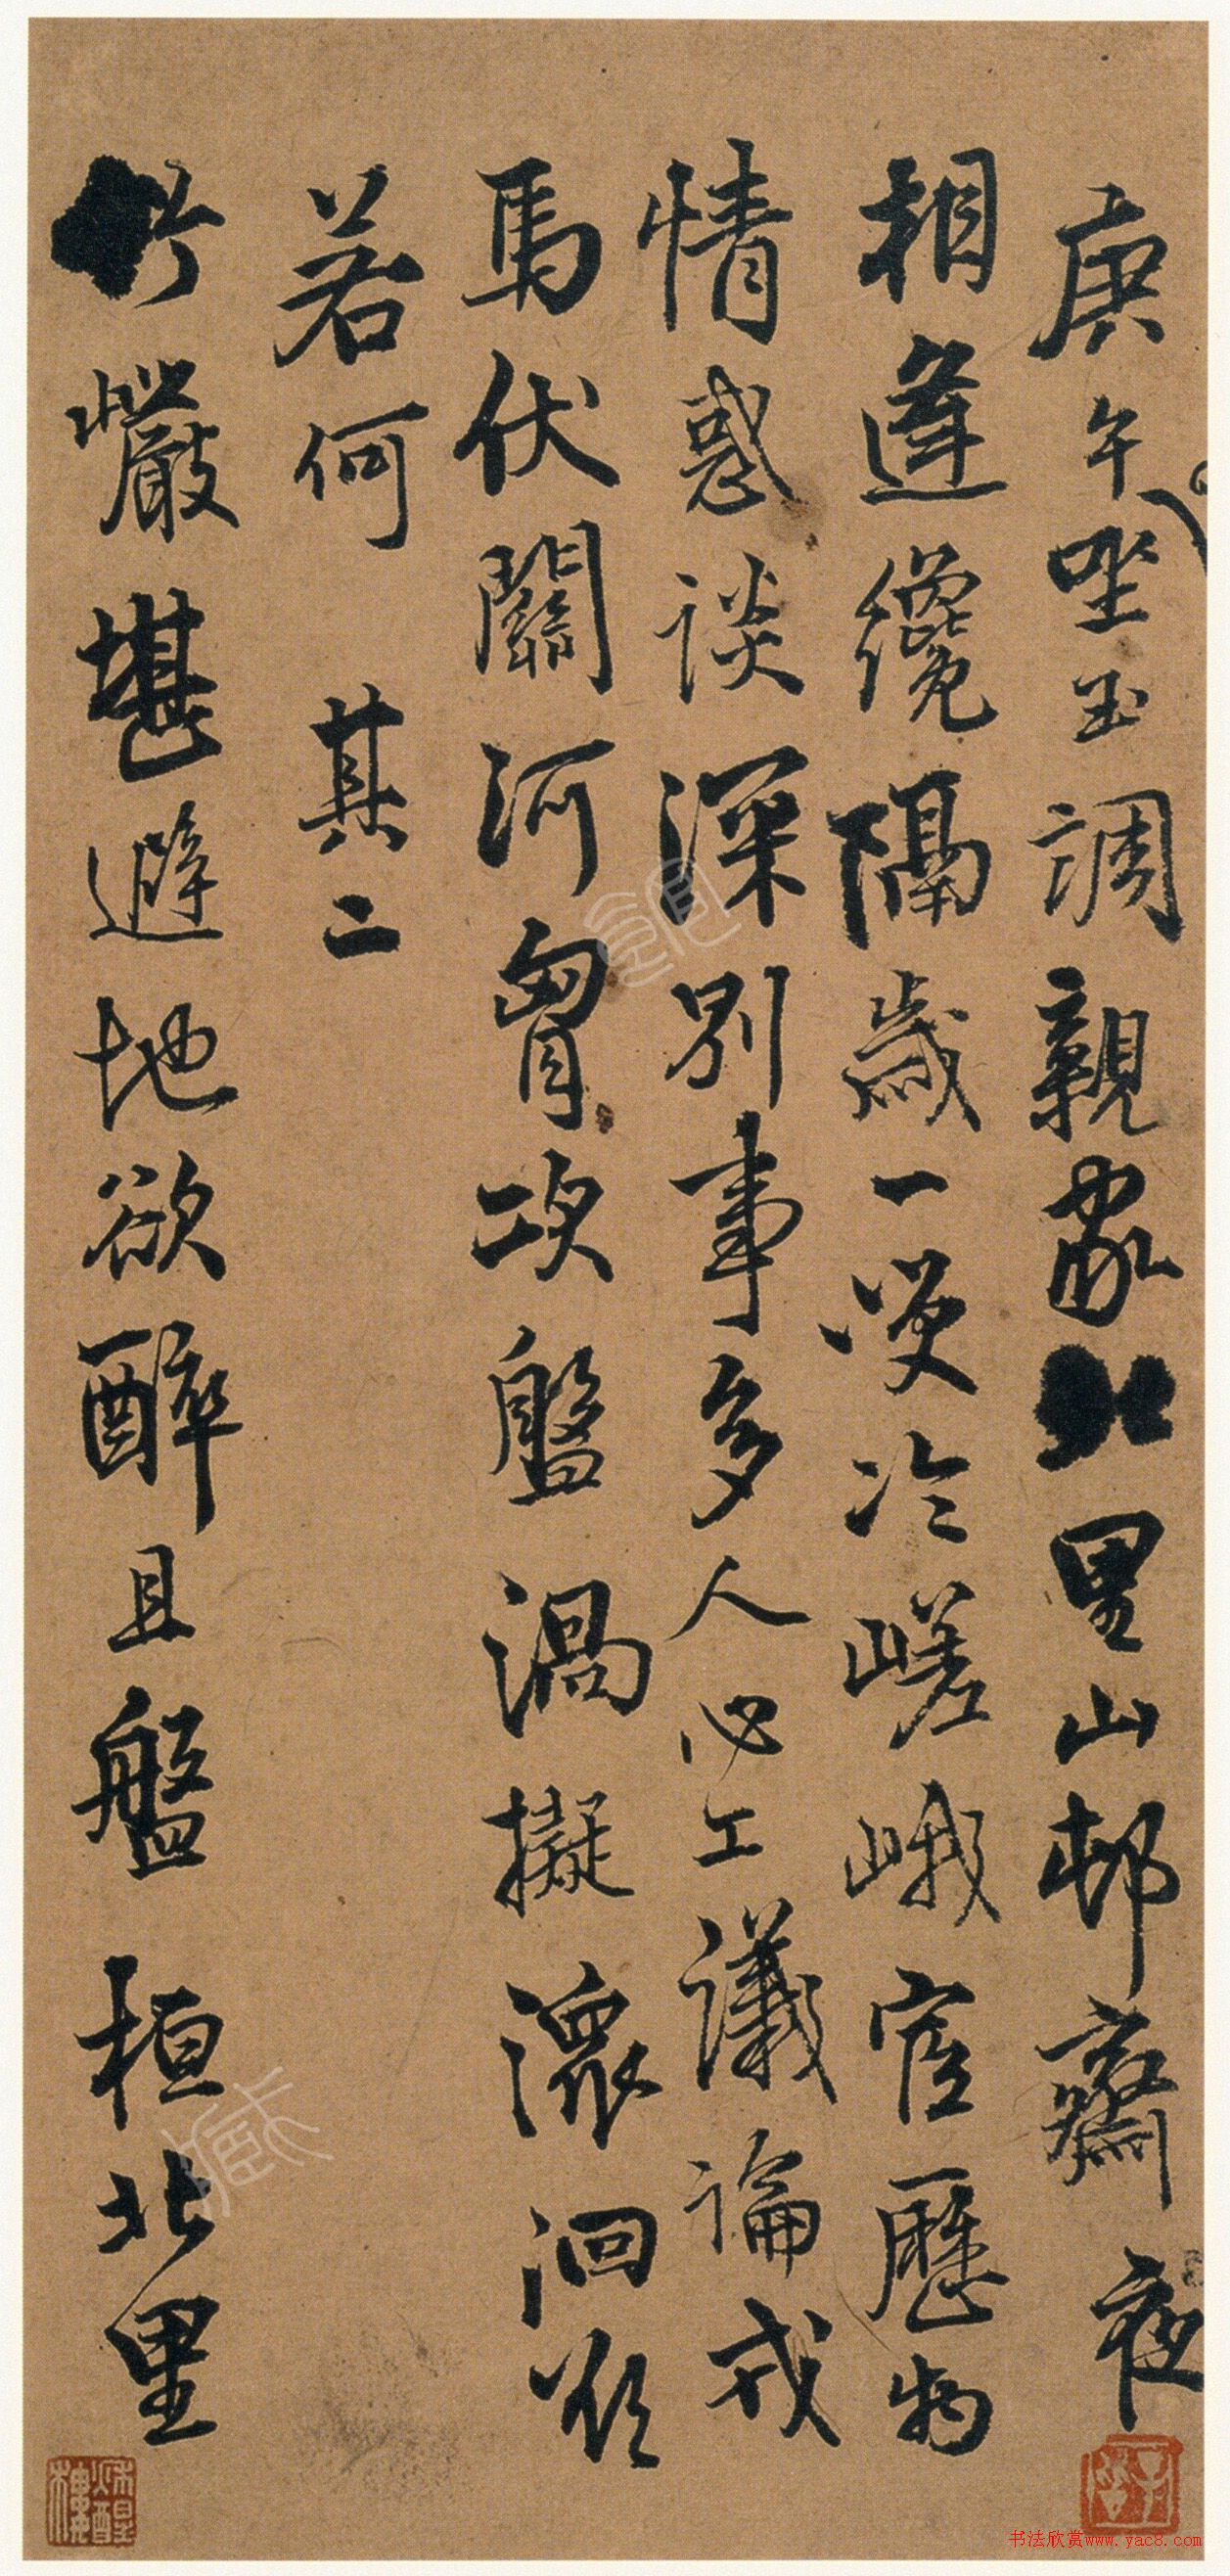 庚午聖玉調親家北里山邨齋夜
相逢纔隔歲一㗂冷嵯峨官歷物
情惑談深別事多人心工議論戎
馬伏關河胷次盤渦擬瀠洄欲
若何 其二
竹巖堪避地欲醉且盤桓北里
书法欣赏www.yac8.com